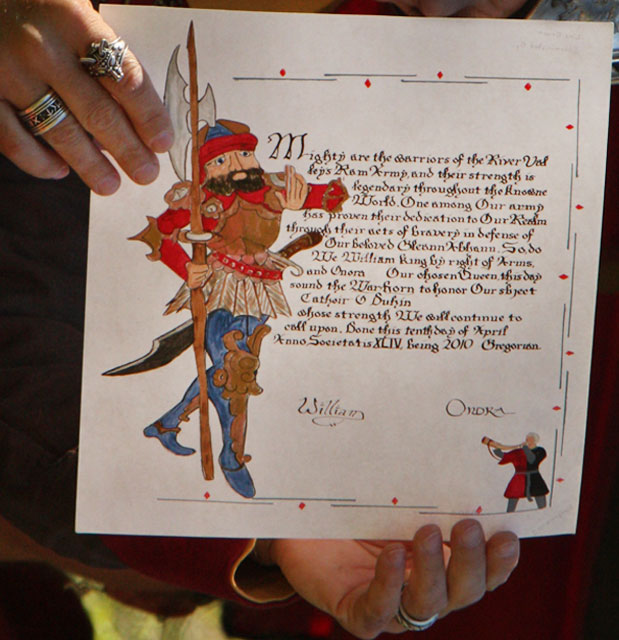 Mighty are the warriors of the River Val
leys Ram Army, and their strength is
legendary throughout the knowne
World. One among Our army
has proven their dedication to Our Realm
through their acts of bravery in defense of
Our beloved Gleann Abhann. So do
We William king by right of Arms,
and Onora Our chosen Queen, this day
sound the Warhorn to honor Our subject
Cathoir O Duhin
whose strength We will continue to
call upon. Done this tenth day of April
Anno Societatis XLIV, being 2010 Gregorian.
William Onora